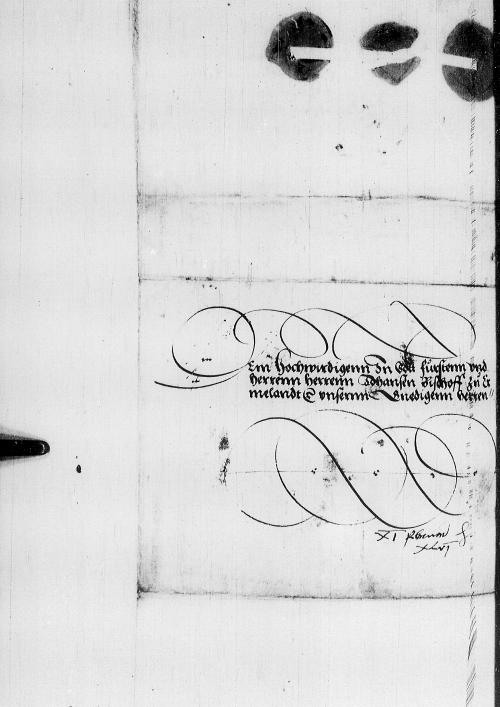 Dem Hochwirdigenn In Got fursten vnd
herrenn herrenn Johansen Bischoff zu Er
melandt vnserm Gnedigenn herren
XI
XLVI